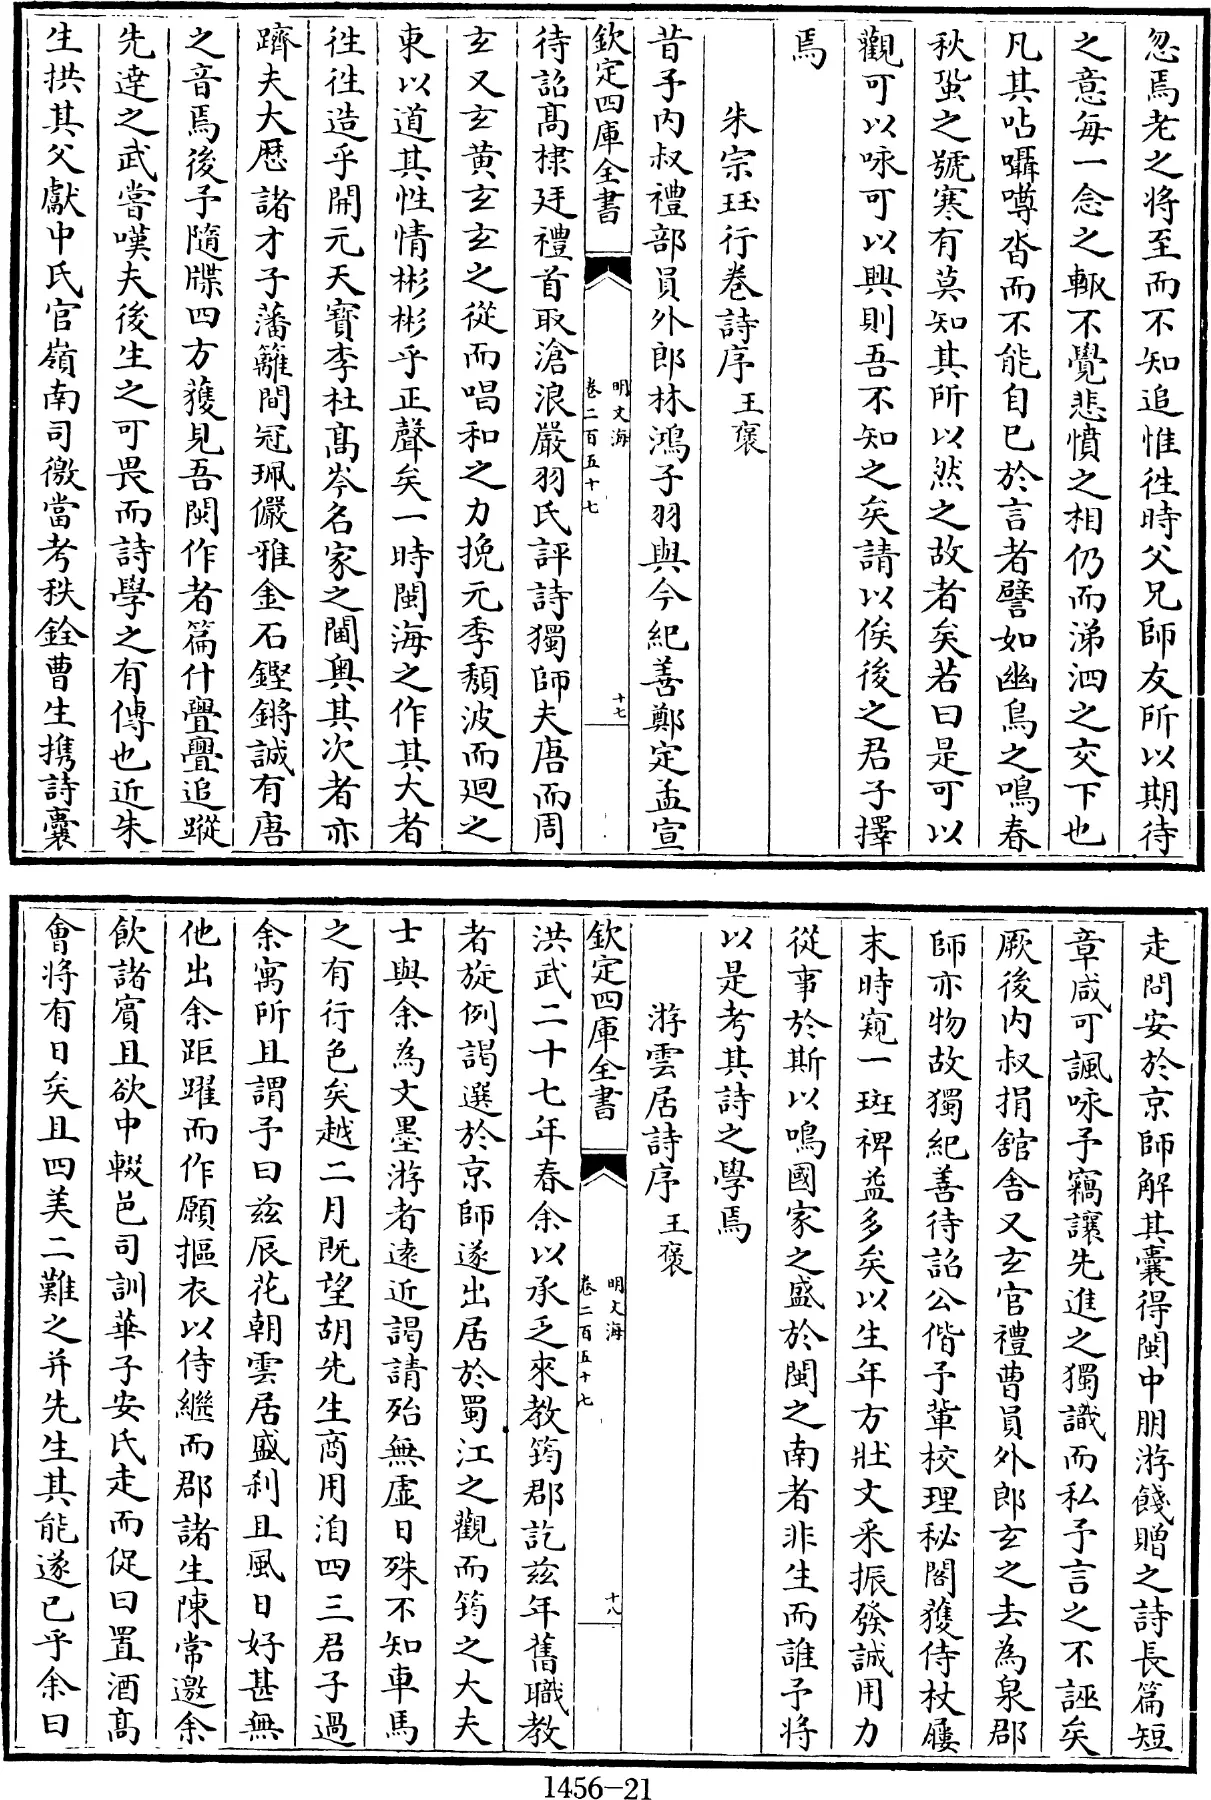 忽焉老之将至而不知追惟徃時父兄師友所以期待
之意每一念之輙不覺悲憤之相仍而涕泗之交下也
凡其呫囁噂沓而不能自已於言者譬如幽鳥之鳴春
秋蛩之號寒有莫知其所以然之故者矣若曰是可以
觀可以咏可以興則吾不知之矣請以俟後之君子擇
焉
朱宗珏行卷詩序 王褒
昔予内叔禮部員外郎林鴻子羽與今紀善鄭定孟宣
欽定四庫全書
明文海
卷二百五十七
十七
待詔髙棣廷禮首取滄浪嚴羽氏評詩獨師夫唐而周
玄又玄黄玄玄之從而唱和之力挽元季頽波而廻之
東以道其性情彬彬乎正聲矣一時閩海之作其大者
徃徃造乎開元天寳李杜髙岑名家之閫奥其次者亦
躋夫大厯諸才子藩籬間冠珮儼雅金石鏗鏘誠有唐
之音焉後予隨牒四方獲見吾閩作者篇什亹亹追蹤
先達之武嘗嘆夫後生之可畏而詩學之有傳也近朱
生拱其父獻中氏官嶺南司徼當考秩銓曹生攜詩囊
走問安於京師解其囊得閩中朋游餞贈之詩長篇短
章咸可諷咏予竊讓先進之獨識而私予言之不誣矣
厥後内叔捐舘舍又玄官禮曹員外郎玄之去為泉郡
師亦物故獨紀善待詔公偕予軰校理秘閣獲侍杖屨
末時窺一斑裨益多矣以生年方壯文采振發誠用力
從事於斯以鳴國家之盛於閩之南者非生而誰予将
以是考其詩之學焉
游雲居詩序 王褒
欽定四庫全書
明文海
卷二百五十七
十八
洪武二十七年春余以承乏來教筠郡訖兹年舊職教
者旋例謁選於京師遂出居於蜀江之觀而筠之大夫
士與余為文墨游者逺近謁請殆無虚日殊不知車馬
之有行色矣越二月既望胡先生商用洎四三君子過
余寓所且謂予曰兹辰花朝雲居盛刹且風日好甚無
他出余距躍而作願摳衣以侍繼而郡諸生陳常邀余
飲諸賓且欲中輟邑司訓華子安氏走而促曰置酒髙
會将有日矣且四美二難之并先生其能遂已乎余曰
1456—21